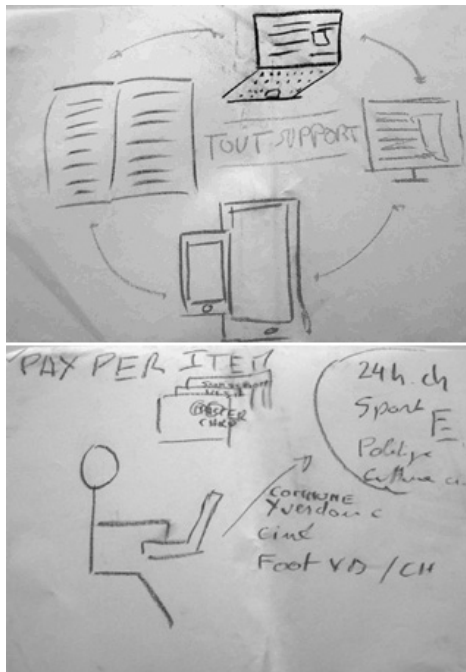 TOUT SUPPORT
PAY PER ITEM
24h.ch
Sport
E
Politique
Culture
COMMUNE
Yverdon
Ciné
Foot VD / CH